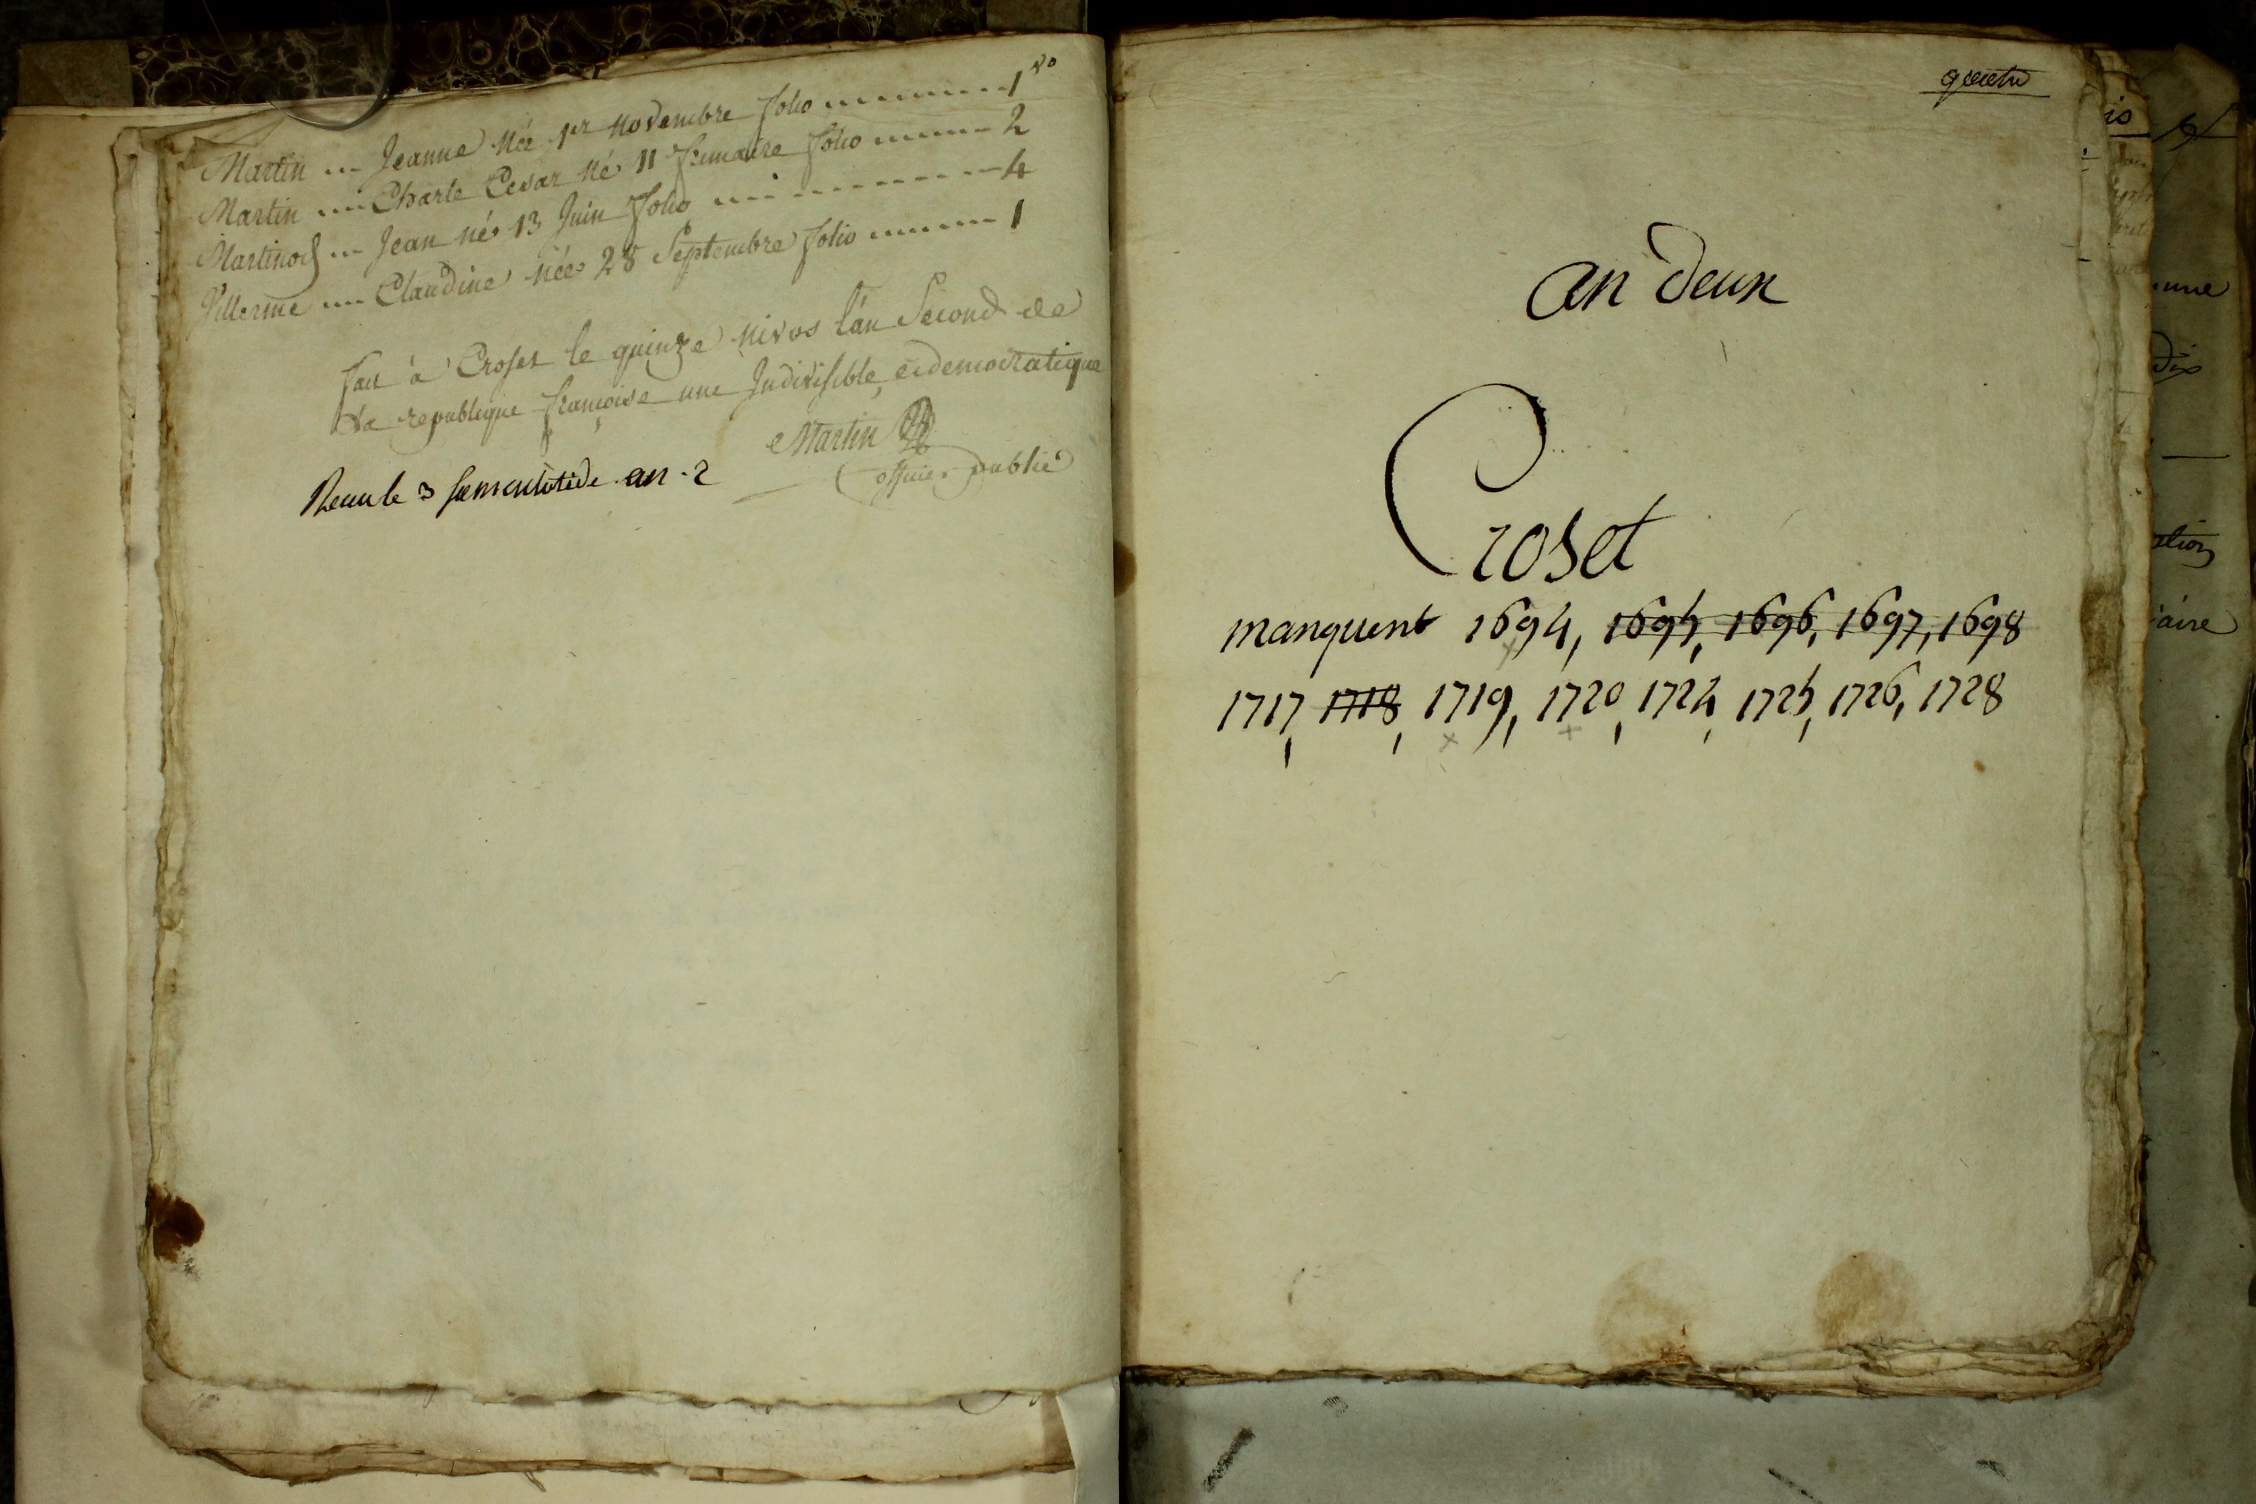 Martin --- Jeanne née 1er novembre folio ------- 1 vo
Martin --- Charle Cesar né 11 frimaire folio ------ 2
Martinod --- Jean né 13 Juin folio ---------- 4
Villerme --- Claudine née 28 Septembre folio ------ 1
fait à Croset le quinze nivos l'an Second de
la republique françoise une Indivisible, e democratique
Martin
officier public
Recu le 3 an 2
quatre
an deux
Croset
manquent 1694, 1695, 1696, 1697, 1698
1717, 1718, 1719, 1720, 1724, 1725, 1726, 1728